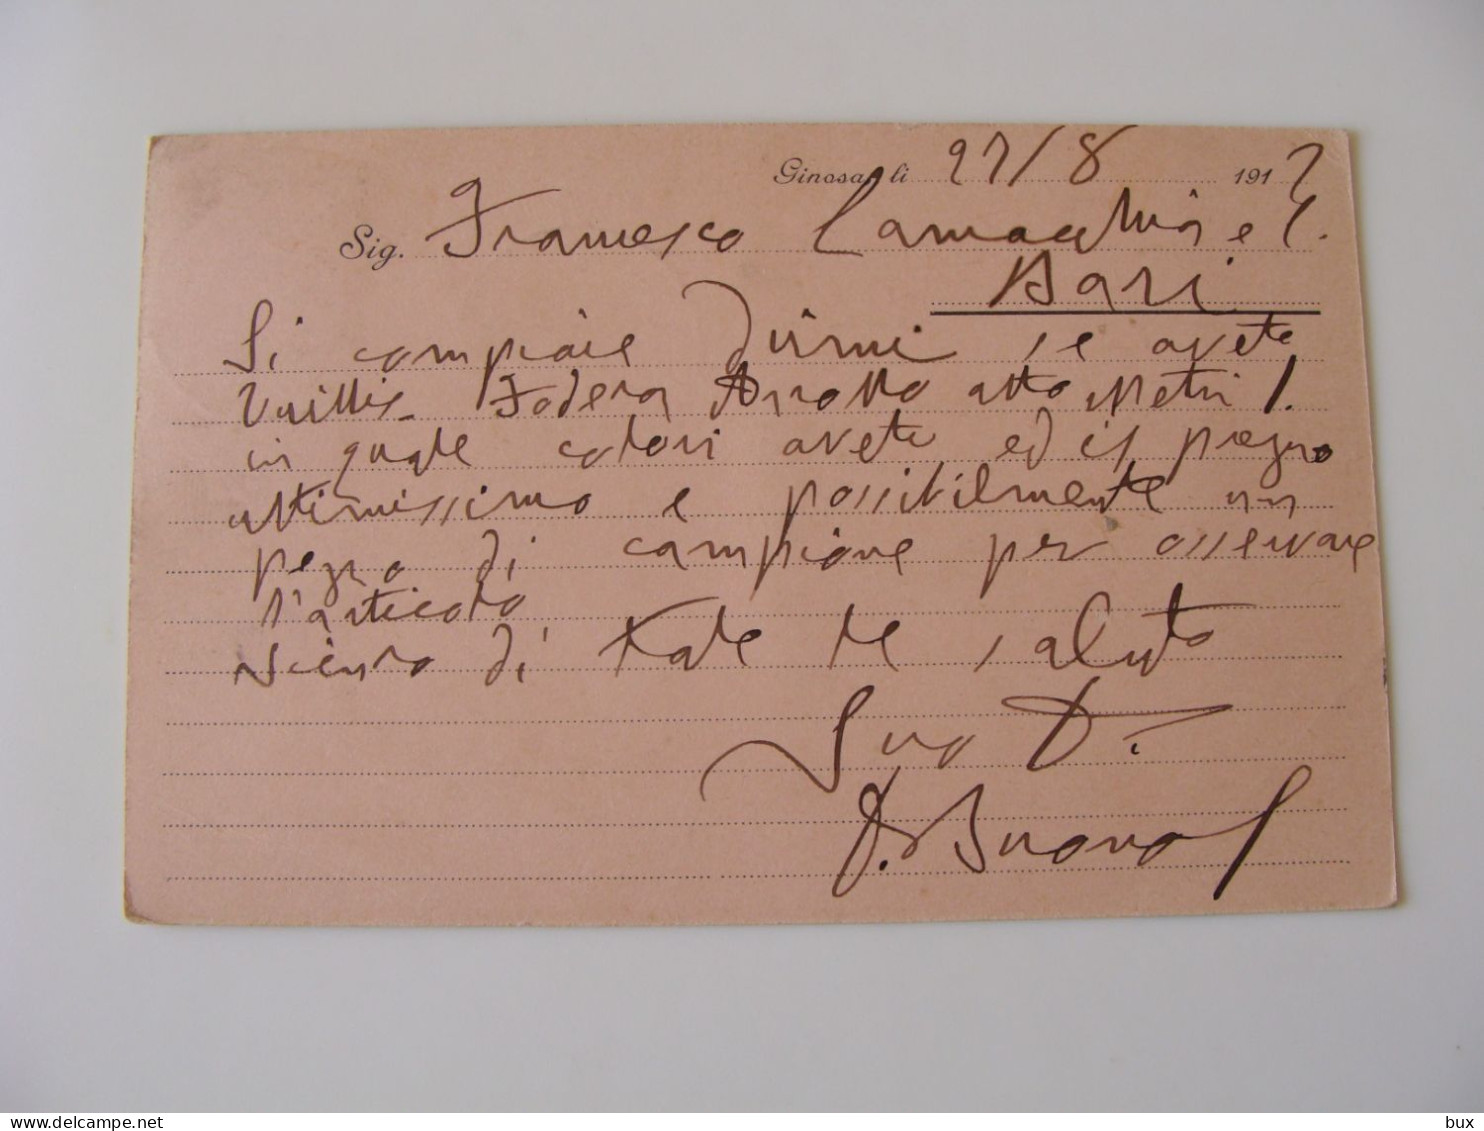 Ginosa, li 27/8 1917
Sig. Francesco Lamacchia e C.
Bari
Si compiaie dirmi se avete
Fodera alto Metri 1.
in quale colori avete ed il prezzo
ultimissimo e possibilmente un
pezzo di campione per osservare
l'articolo
di tale le saluto
Suo D.
bux
delcampe.net